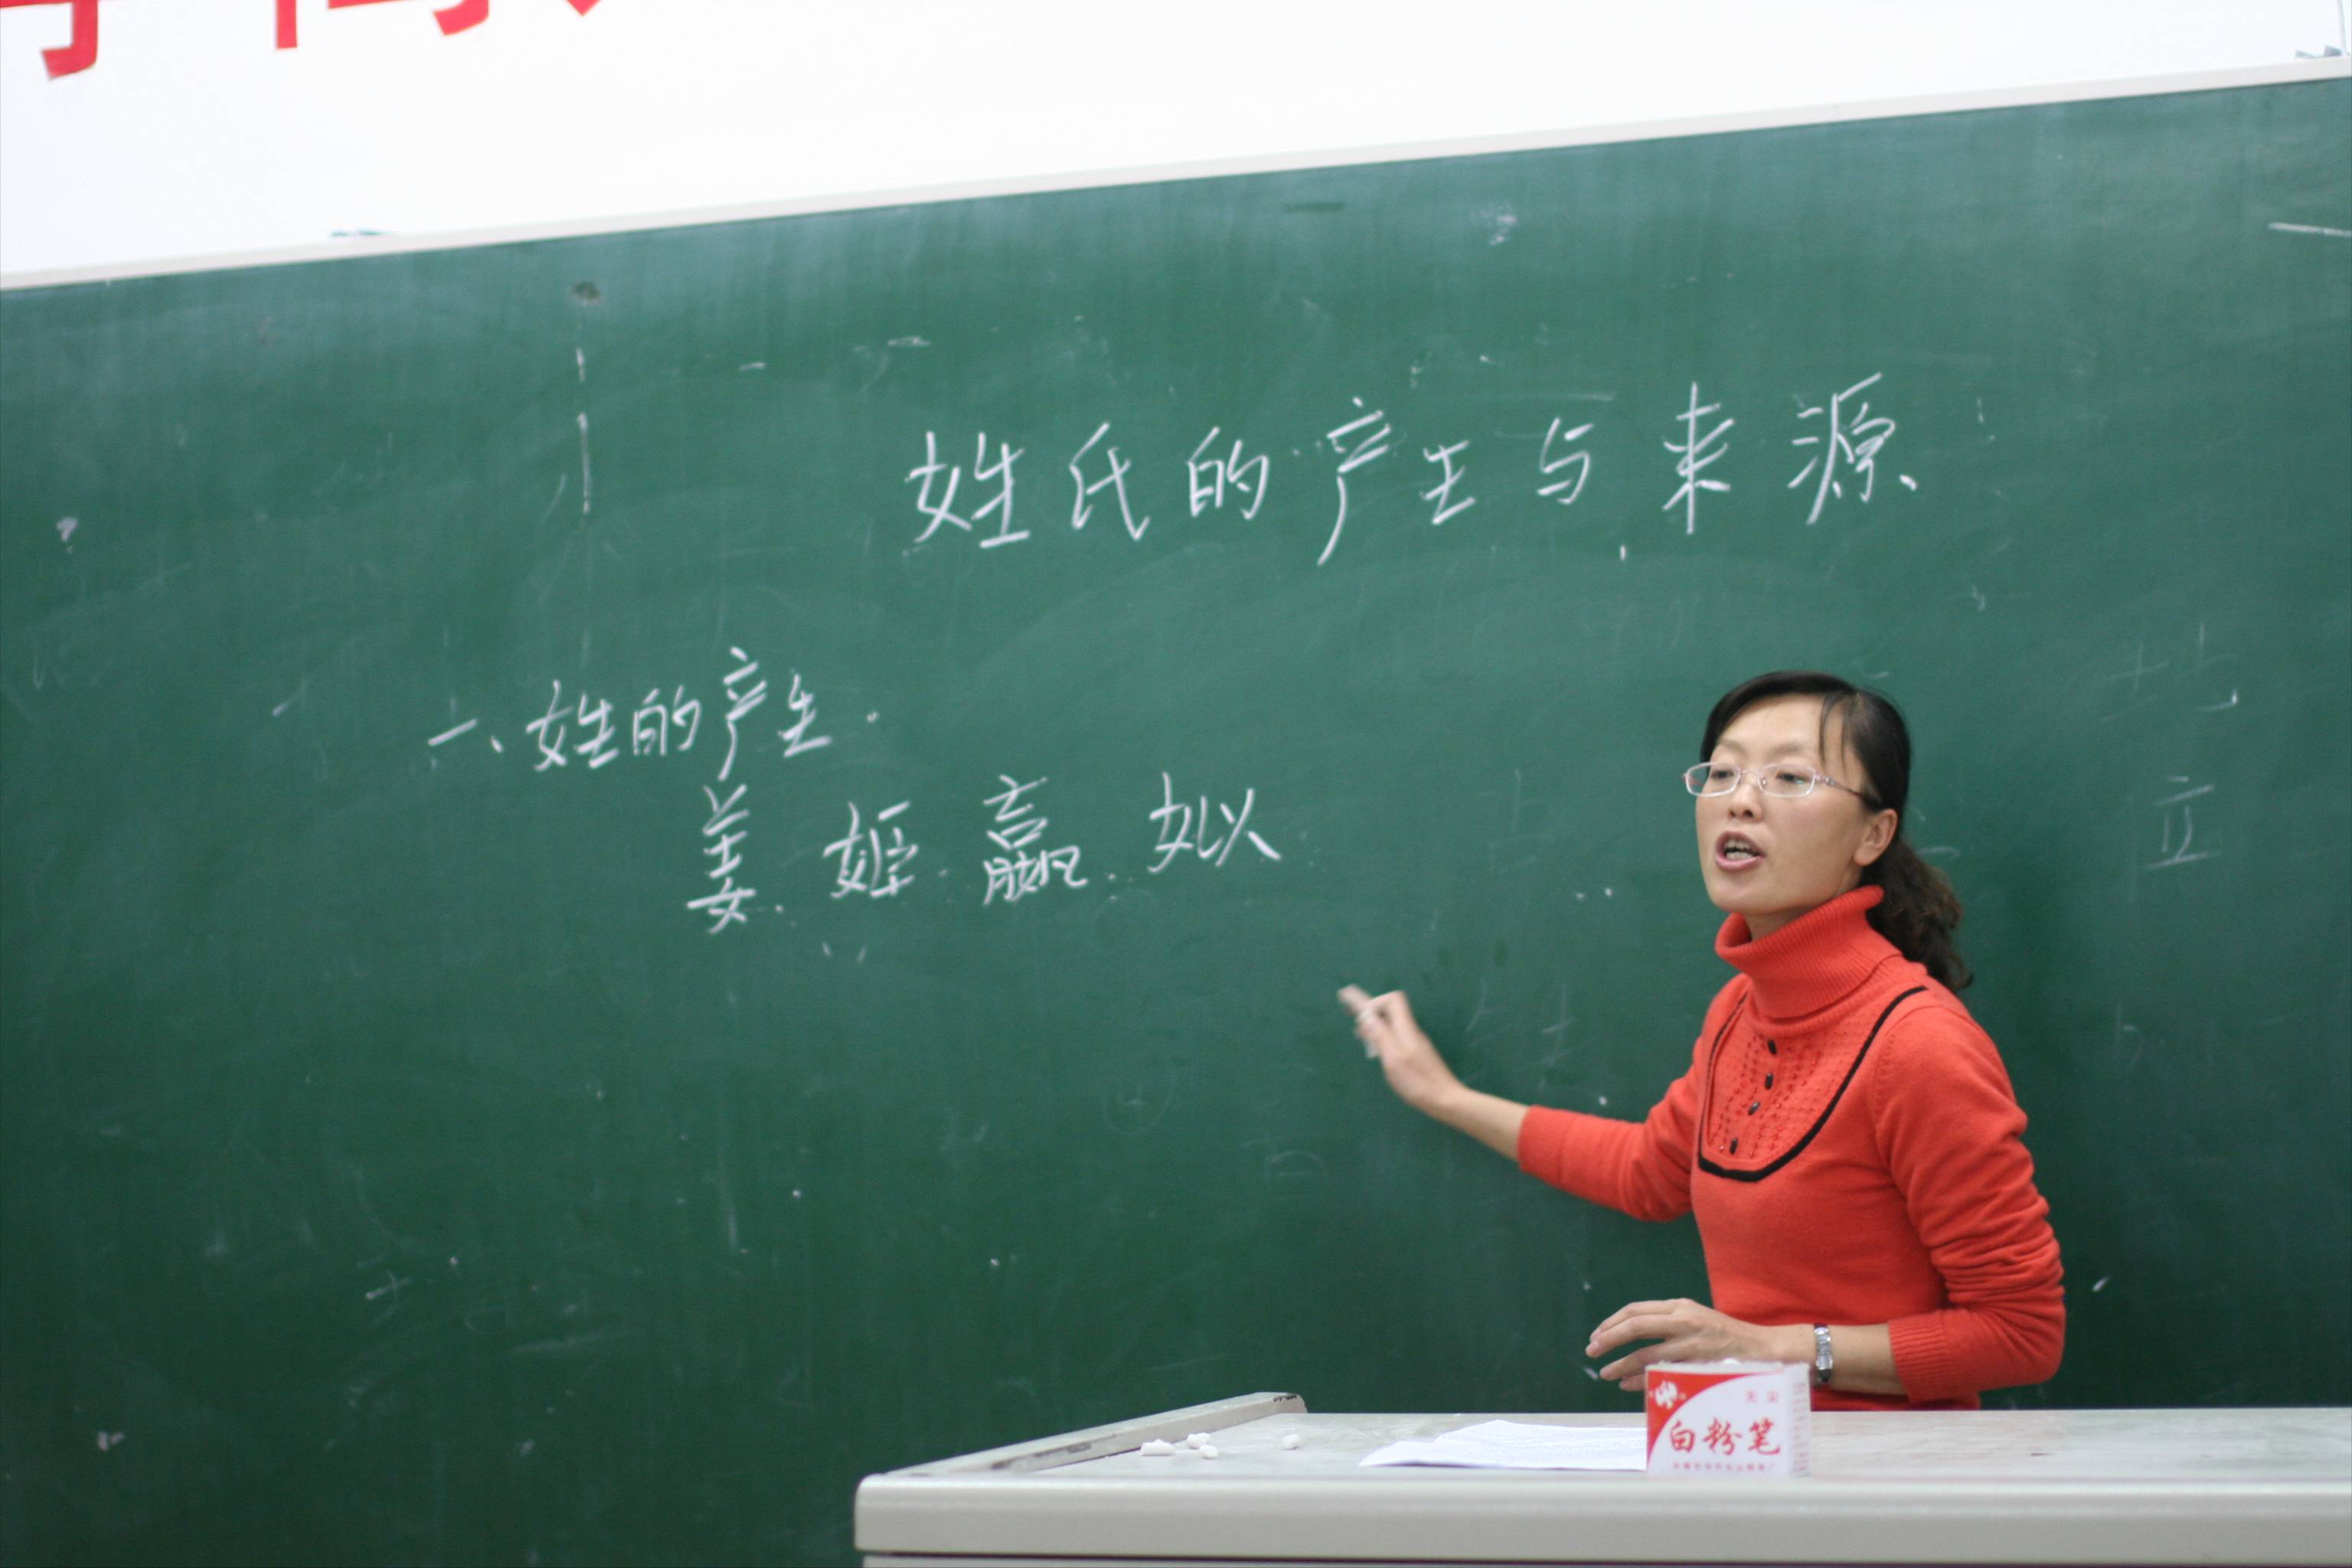 姓氏的产生与来源
一、姓的产生.
姜.姬.嬴.姒
无尘
白粉笔